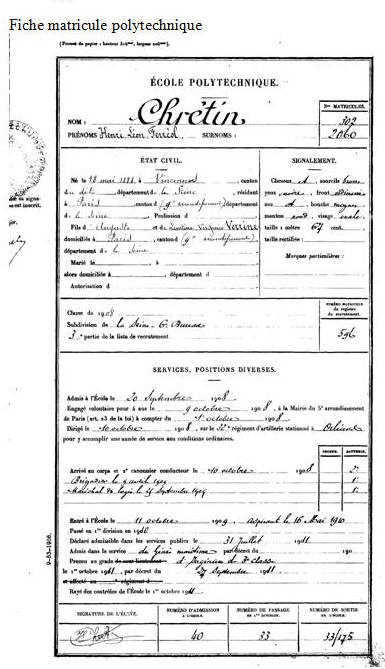 Fiche matricule polytechnique
(Format du papier : hauteur largeur
ÉCOLE POLYTECHNIQUE.
NOM : Chrétin
Nos MATRICULES.
302
2060
PRÉNOMS Henri Léon SURNOMS :
ÉTAT CIVIL.
Né le 28 mai 1888, à Vincennes, canton
du dit, département de la Seine, résidant
à Paris, canton d (9e arrondissement) département
de la Seine Profession d
Fils d' Auguste et de Virginie Verrine
domiciliés à Paris, canton d (9e arrondissement)
département de la Seine
Marié le à
alors domiciliée à département d
Autorisation d
SIGNALEMENT.
Cheveux sourcils bruns
yeux front
nez bouche moyenne
menton rond, visage ovale
taille : 1 mètre 67 cent.
taille rectifiée :
Marques particulières :
Classe de 1908
Subdivision de la Seine 6e Bureau
3e partie de la liste de recrutement
NUMÉRO MATRICULE
du registre
du recrutement.
596
SERVICES, POSITIONS DIVERSES.
Admis à l'École le 20 Septembre 1908
Engagé volontaire pour 4 ans le 9 octobre 1908, à la Mairie du 5e arrondissement
de Paris (art. 23 de la loi) à compter du 1er octobre 1908
Dirigé le 10 octobre 1908, sur 32e régiment d'artillerie stationné à Orléans
pour y accomplir une année de service aux conditions ordinaires.
Arrivé au corps et 2e canonnier conducteur le 10 octobre 1908
Brigadier le avril 1909
Maréchal des logis le 25 Septembre 1909
Entré à l'École le 11 octobre 1909. Aspirant le 16 Mai 1910
Passé en 1re division en 1910
Déclaré admissible dans les services publics le 31 Juillet 1911
Admis dans le service du Génie maritime par décret du 190
Promu au grade de sous-lieutenant d'Ingénieur de 3e classe
le 1er octobre 1911, par décret du 27 Septembre 1911.
et affecté au régiment d
Rayé des contrôles de l'École le 1er octobre 1911
9-33-1906.
SIGNATURE DE L'ÉLÈVE.
NUMÉRO D'ADMISSION
à L'ÉCOLE.
NUMÉRO DE PASSAGE
EN 1re DIVISION.
NUMÉRO DE SORTIE
40
33
33/175